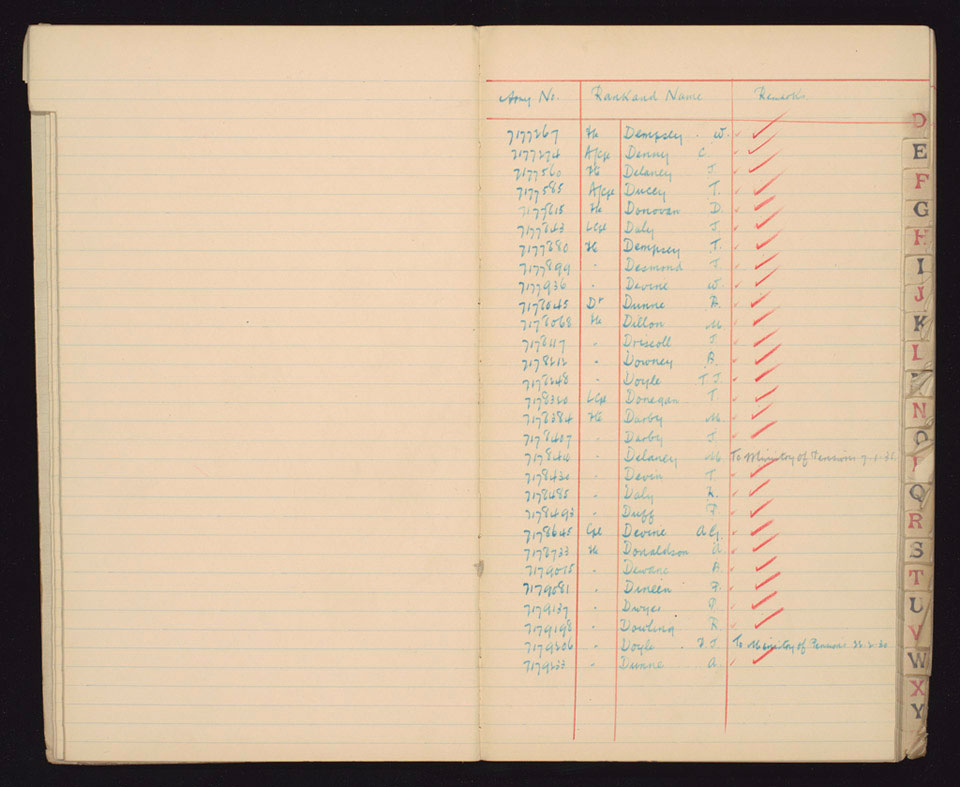 Army No. Rank and Name Remarks
7177267 Dempsey W.
7177274 Denny C.
7177560 Delaney J.
7177585 Ducey T.
Donovan D.
7177843 LCpl Daly J.
7177880 Dempsey T.
7177899 " Desmond J.
7177936 " Devine W.
7178045 Dr Dunne
7178068 Dillon M.
" Driscoll J.
7178212 " Downey B.
7178248 " Doyle T.J.
7178320 LCpl Donegan T.
7178384 Darby M.
7178407 " Darby J.
" Delaney M. To Ministry of Pensions
" Devin T.
7178485 " Daly
7178493 " Duff P.
7178645 Cpl Devine A.G.
7178733 Donaldson A.
7179075 " Dewane B.
7179081 " Dineen P.
7179137 " Dwyer P.
7179198 " Dowling R.
7179206 " Doyle To Ministry of Pensions
7179233 " Dunne A.
D
E
F
G
H
I
J
K
L
N
O
Q
R
S
T
U
V
W
X
Y